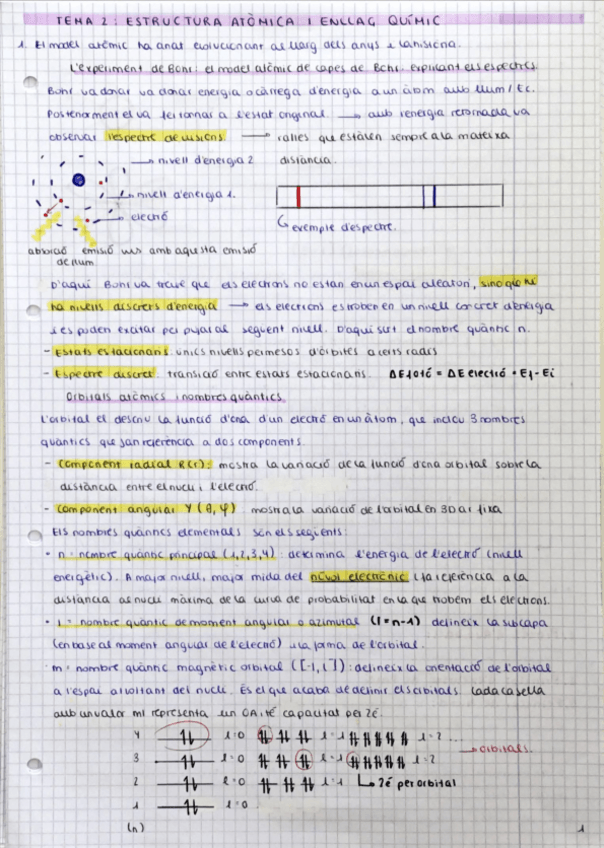 TEMA 2: ESTRUCTURA ATÒMICA I ENLLAÇ QUÍMIC
1. El model atòmic ha anat evolucionant al llarg dels anys i la història.
L'experiment de Bohr: el model atòmic de capes de Bohr. explicant els espectres.
Bohr va donar va donar energia o càrrega d'energia a un àtom amb llum / Ec.
Posteriorment el va fer tornar a l'estat original → amb l'energia retornada va
observar l'espectre d'emissions → ratlles que estàven sempre a la mateixa
distància.
nivell d'energia 2
nivell d'energia 1.
electró
exemple d'espectre.
absorció emisió ulls amb aquesta emisió
de llum
D'aquí Bohr va treure que els electrons no estan en un espai aleatori, sino que hi
ha nivells discrets d'energia → els electrons es troben en un nivell concret d'energia
i es poden excitar per pujar al següent nivell. D'aquí surt el nombre quàntic n.
- Estats estacionaris: únics nivells permesos d'òrbites a certs radis
- Espectre discret: transició entre estats estacionaris. ΔE fotó = ΔE electró = Ef - Ei
Orbitals atòmics i nombres quàntics.
L'orbital el descriu la funció d'ona d'un electró en un àtom, que inclou 3 nombres
quàntics que fan referència a dos components.
- Component radial R(r): mostra la variació de la funció d'ona orbital sobre la
distància entre el nucli i l'electró.
- Component angular Y(θ,φ) mostra la variació de l'orbital en 3D a r fixa
Els nombres quàntics elementals són els següents:
• n = nombre quàntic principal (1,2,3,4): determina l'energia de l'electró (nivell
energètic). A major nivell, major mida del núvol electrònic i fa referència a la
distància al nucli màxima de la curva de probabilitat en la que trobem els electrons.
• l = nombre quàntic de moment angular o azimutal (l=n-1) defineix la subcapa
(en base al moment angular de l'electró) i la forma de l'orbital.
m = nombre quàntic magnètic orbital ([-l, l]): defineix la orientació de l'orbital
a l'espai al voltant del nucli. És el que acaba de definir els orbitals. Cada casella
amb un valor ml representa un OA i té capacitat per 2é.
4 l=0 l=1 l=2 ...
orbitals.
3 l=0 l=1 l=2
2 l=0 l=1 2é per orbital
1 l=0
(n)
1